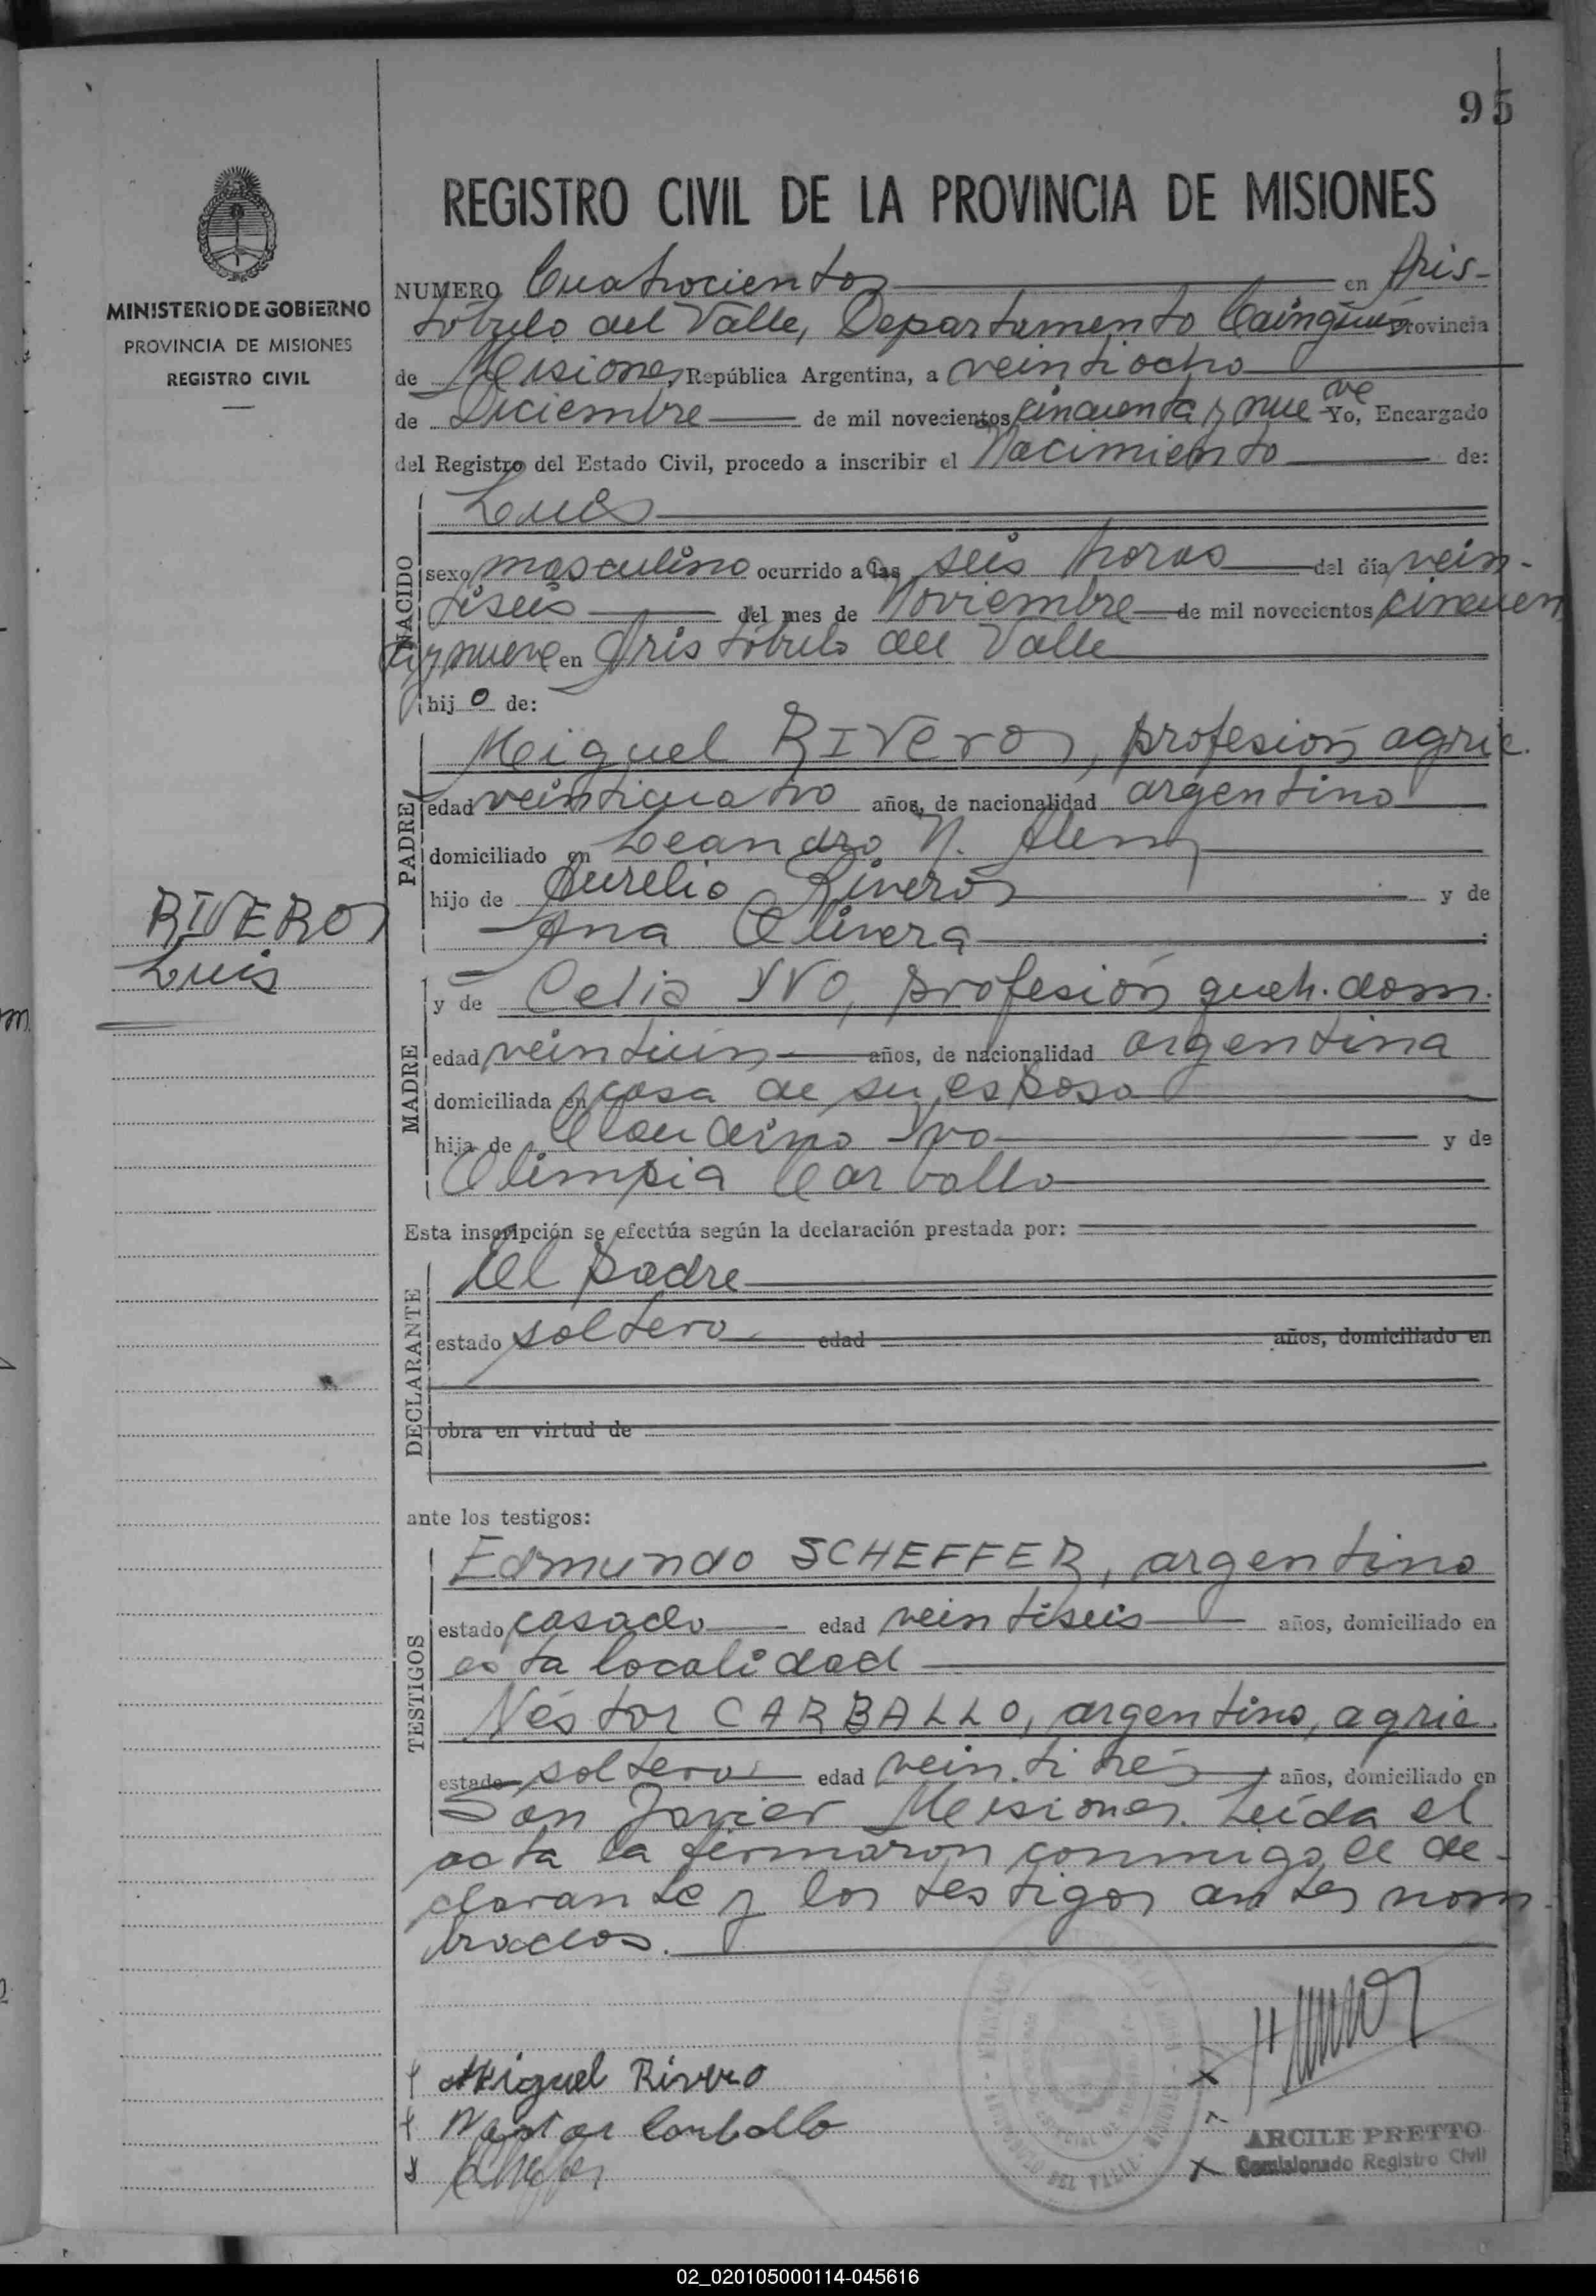 95
REGISTRO CIVIL DE LA PROVINCIA DE MISIONES
MINISTERIO DE GOBIERNO
PROVINCIA DE MISIONES
REGISTRO CIVIL
NUMERO Cuatrocientos en Aris-
tóbulo del Valle, Departamento Cainguás Provincia
de Misiones República Argentina, a veintiocho
de Diciembre de mil novecientos cincuenta y nueve Yo, Encargado
del Registro del Estado Civil, procedo a inscribir el Nacimiento de:
NACIDO
Luis
sexo masculino ocurrido a las seis horas del día vein-
tiseis del mes de Noviembre de mil novecientos cincuen
ta y nueve en Aristóbulo del Valle
hijo de:
PADRE
Miguel RIVEROs, profesión agric.
edad veinticuatro años, de nacionalidad argentino
domiciliado en Leandro N. Alem
hijo de Aurelio Riveros y de
Ana Olivera
RIVEROs
Luis
MADRE
y de Celia YVO, profesión queh. dom.
edad veintiún años, de nacionalidad argentina
domiciliada en casa de su esposo
hija de Claudino Ivo y de
Olimpia Carballo
Esta inscripción se efectúa según la declaración prestada por:
DECLARANTE
El padre
estado soltero edad años, domiciliado en
obra en virtud de
ante los testigos:
TESTIGOS
Edmundo SCHEFFER, argentino
estado casado edad veintiseis años, domiciliado en
esta localidad
Néstor CARBALLO, argentino, agric.
estado soltero edad veintitrés años, domiciliado en
San Javier Misiones. Leída el
acta la firmaron conmigo el de-
clarante y los testigos antes nom
brados.
Miguel Rivero
Nestor Carballo
ARCILE PRETTO
Comisionado Registro Civil
02_020105000114-045616